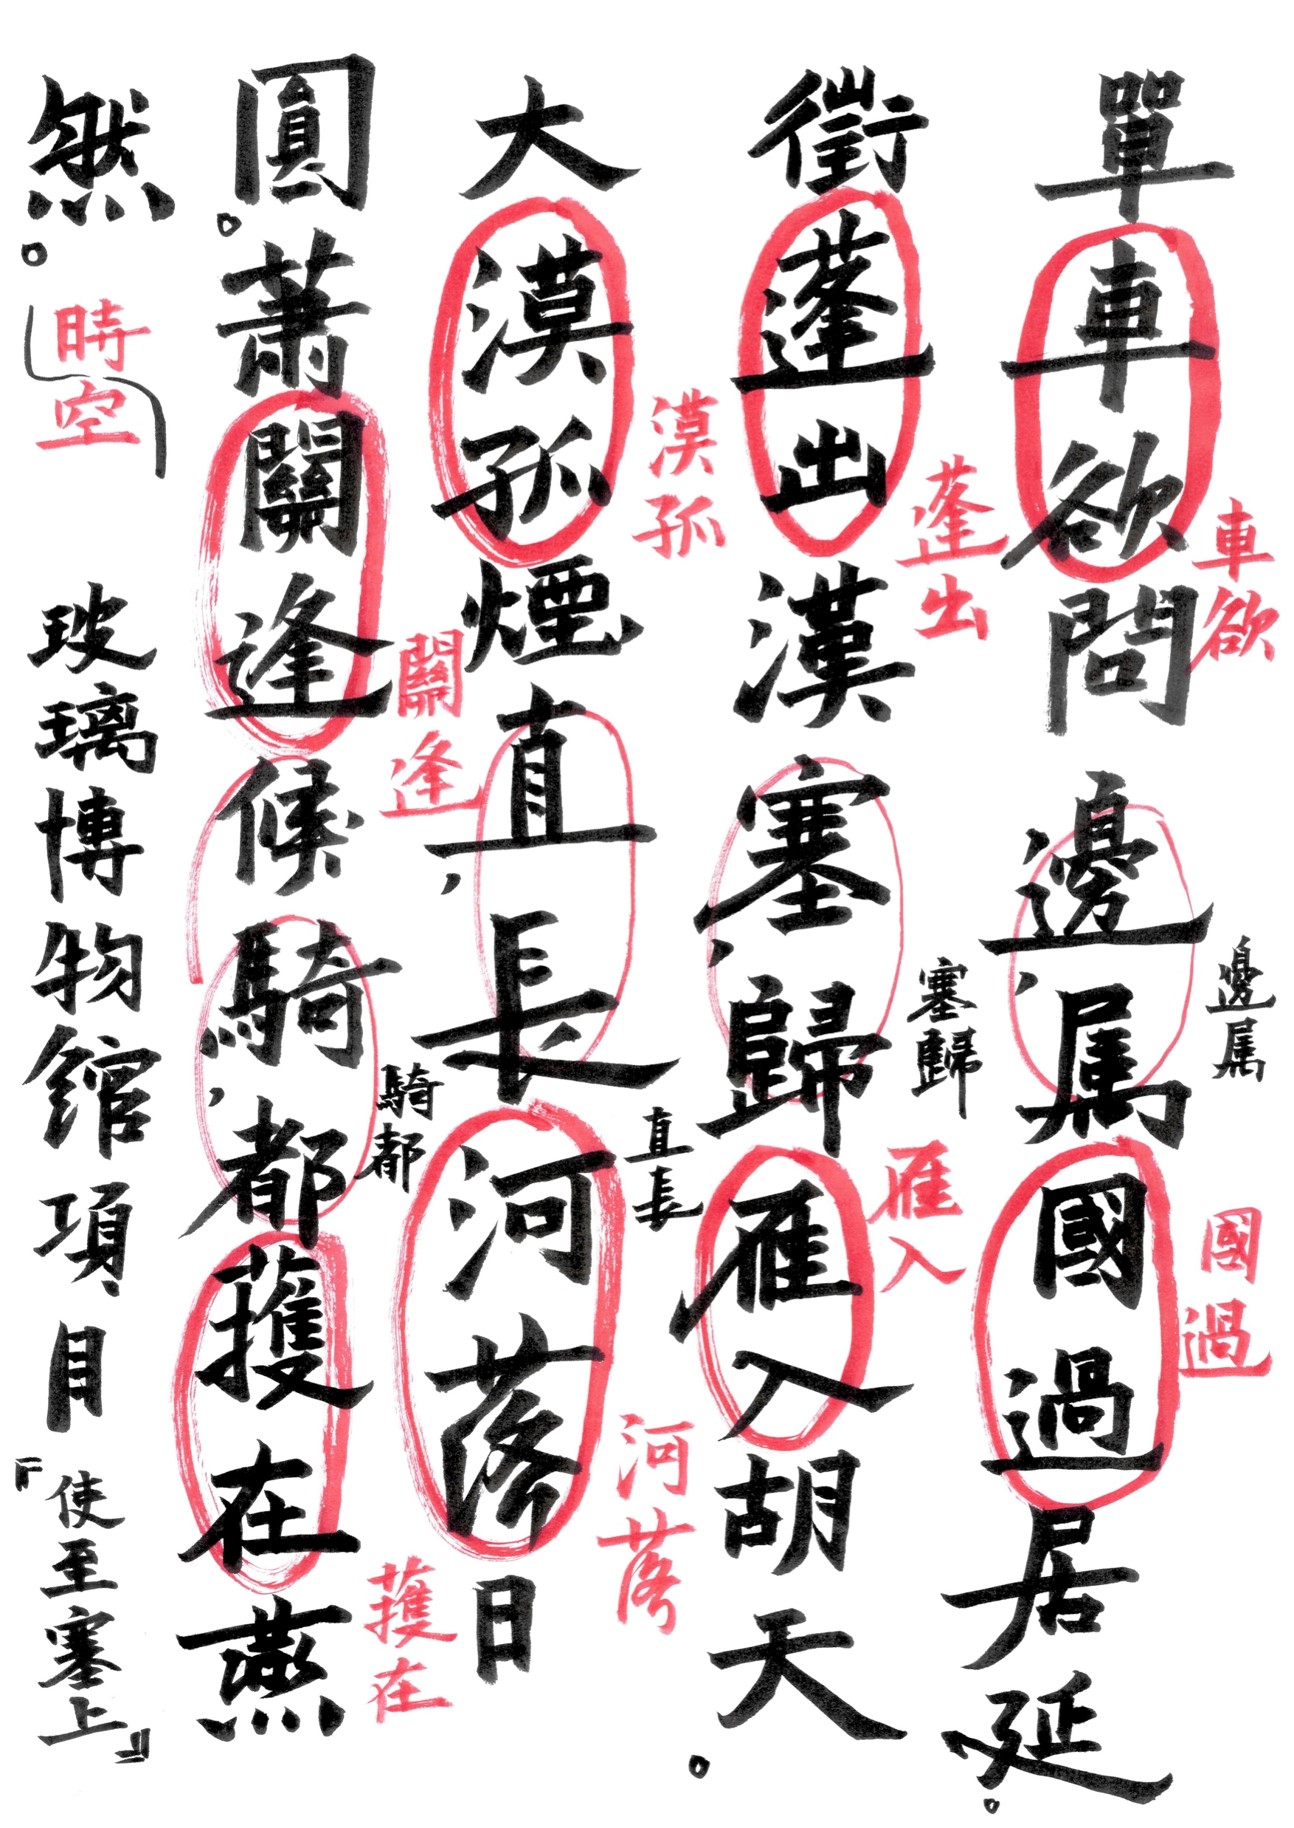 單車欲問邊，属國過居延。
車欲
邊属
國過
徵蓬出漢塞，歸雁入胡天。
蓬出
塞歸
雁入
大漠孤煙直，長河落日
漠孤
直長
河落
圓。蕭關逢候騎，都擭在燕
關逢
騎都
擭在
然。
時空
玻璃博物館項目『使至塞上』